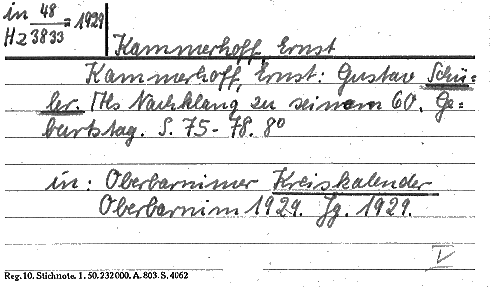 in 48/3833 = 1929
Hz
Kammerhoff, Ernst
Kammerhoff, Ernst: Gustav Schü-
ler. Als Nachklang zu seinem 60. Ge-
burtstag. S. 75-78. 8°
in: Oberbarnimer Kreiskalender
Oberbarnim 1929. Jg. 1929.
V
Reg. 10. Stichnote. 1. 50. 232000. A. 803. S. 4062